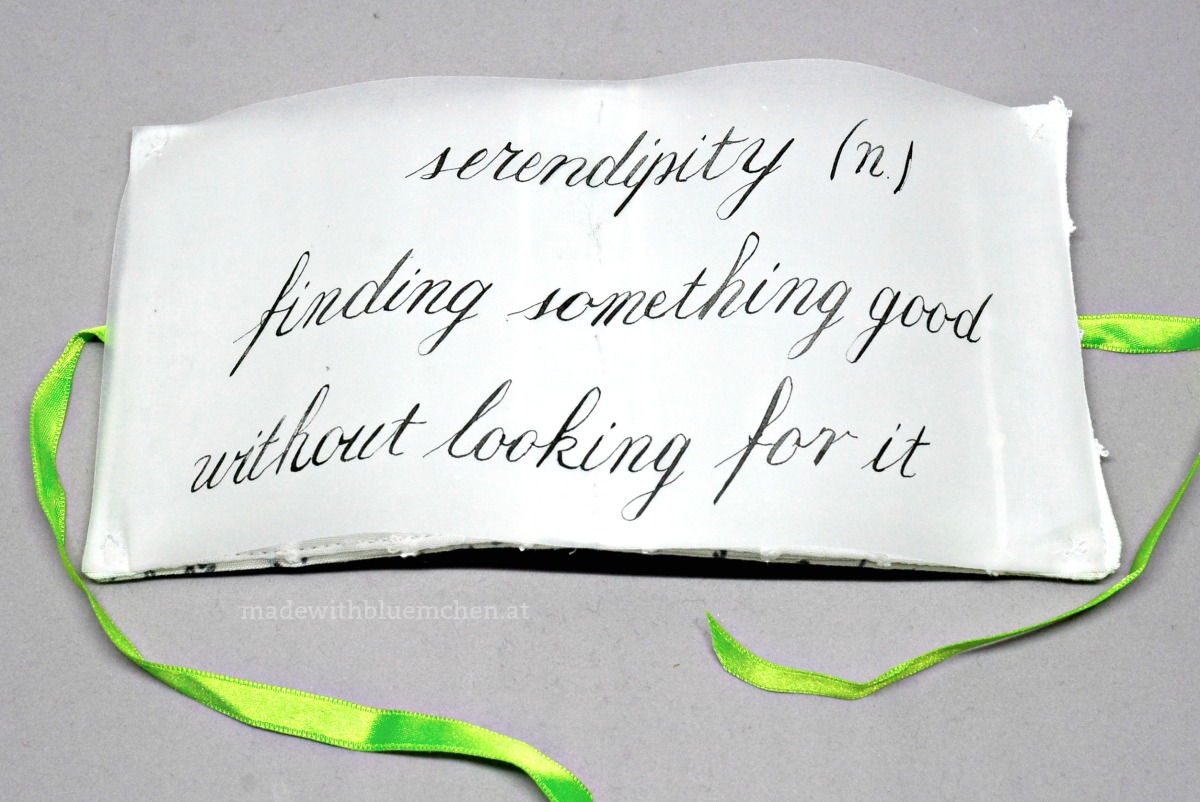 serendipity (n.)
finding something good
without looking for it
madewithbluemchen.at